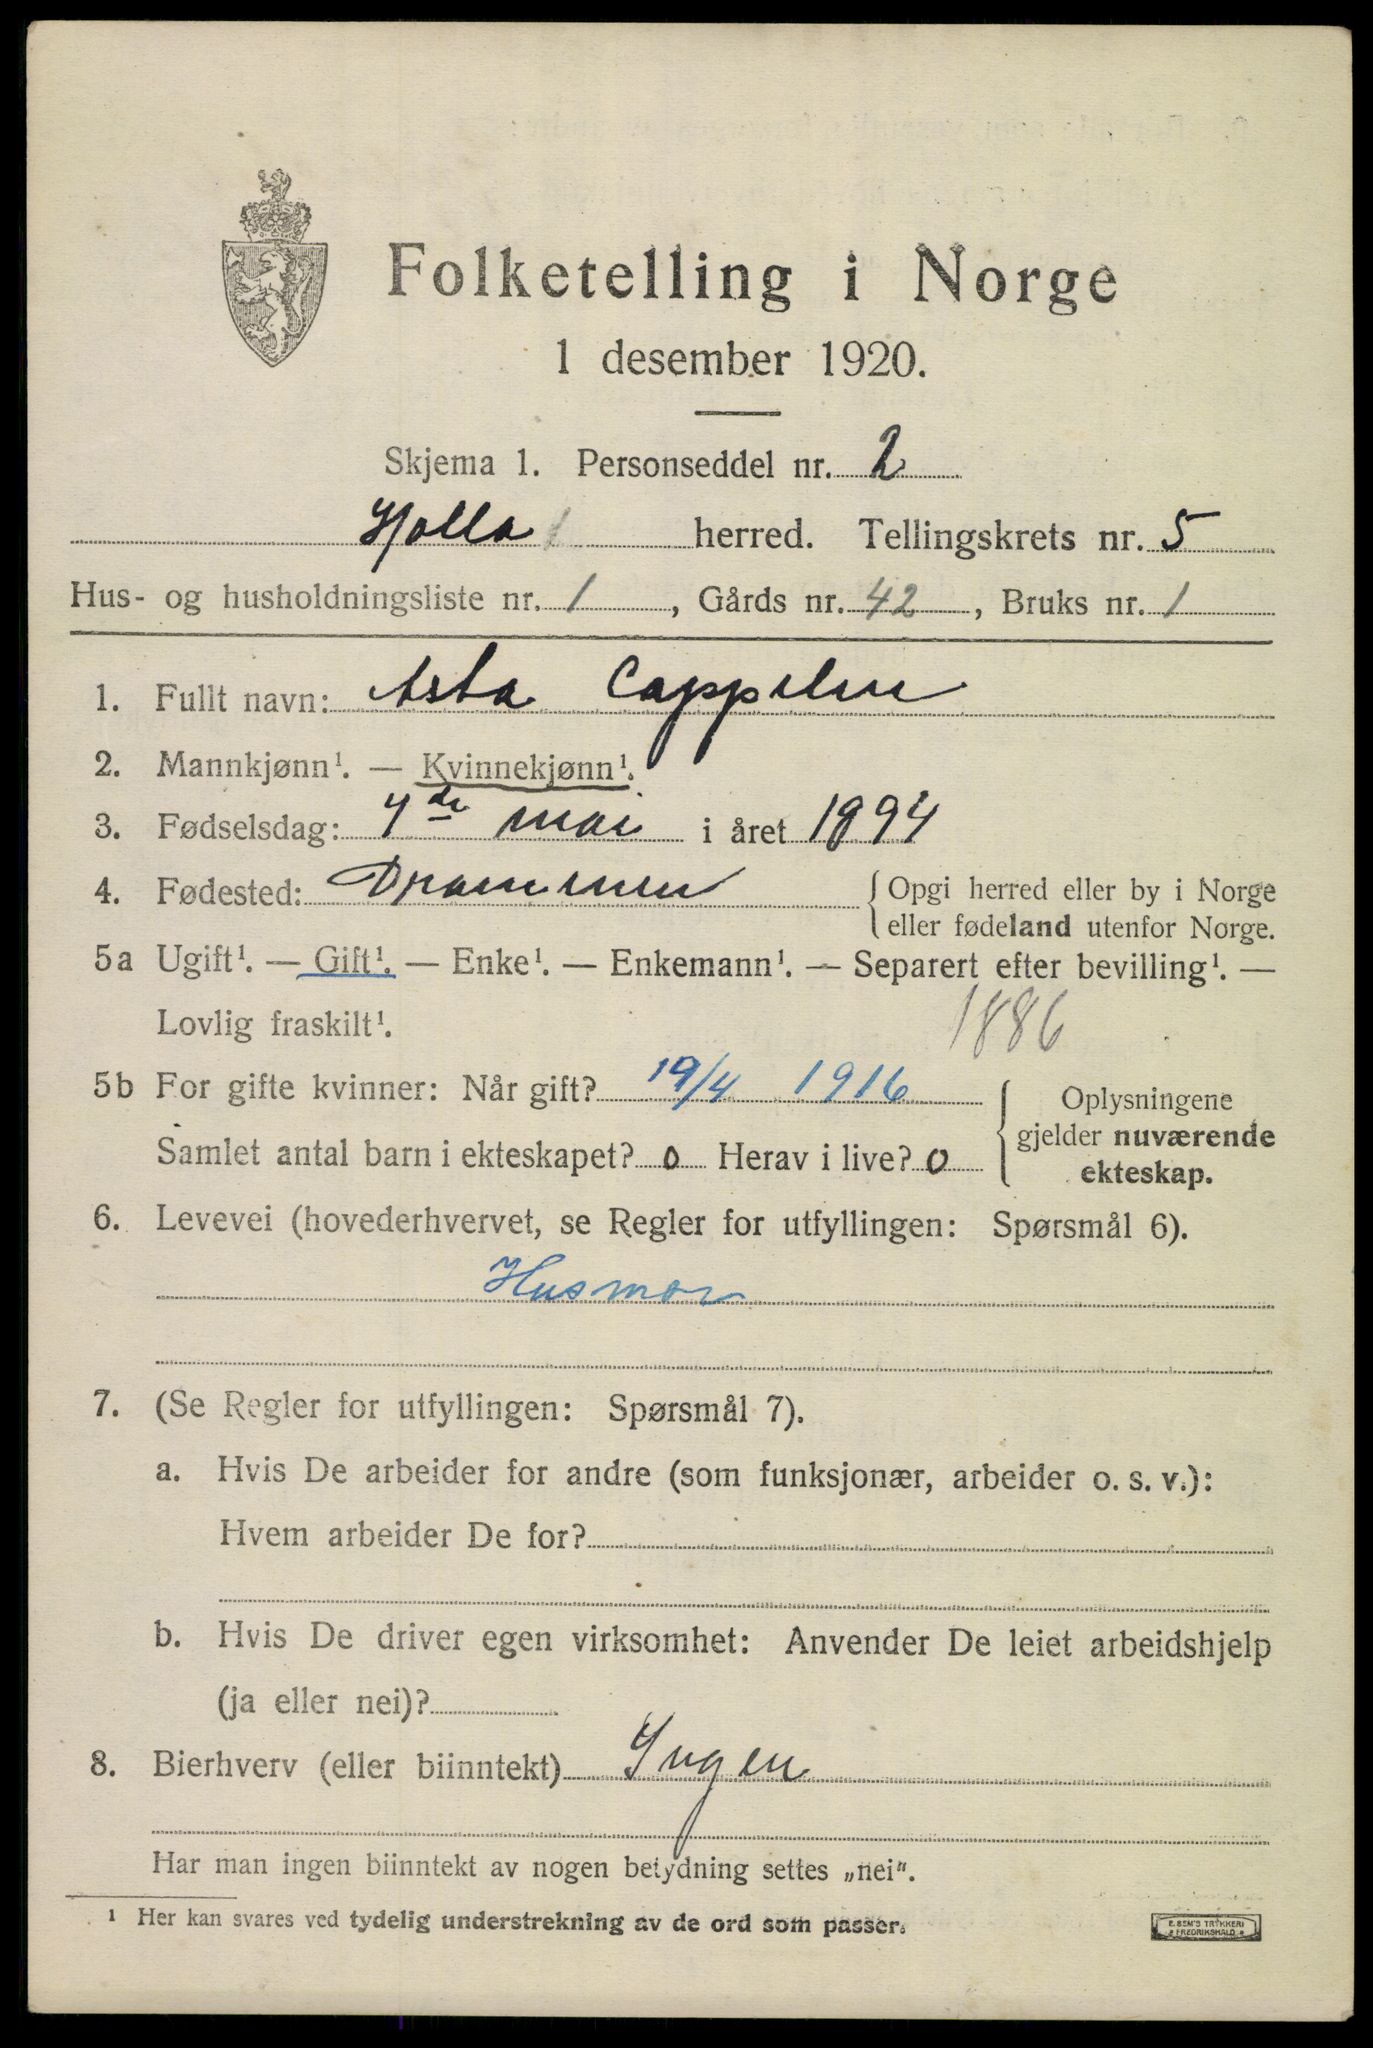 Folketelling i Norge
1 desember 1920.
Skjema 1. Personseddel nr. 2
Holla herred. Tellingskrets nr. 5
Hus- og husholdningsliste nr. 1, Gårds nr. 42, Bruks nr. 1
1. Fullt navn: Asta Cappelen
2. Mannkjønn¹. — Kvinnekjønn¹.
3. Fødselsdag: 4de mai i året 1894
4. Fødested: Drammen {Opgi herred eller by i Norge
eller fødeland utenfor Norge.
5a Ugift¹. — Gift¹. — Enke¹. — Enkemann¹. — Separert efter bevilling¹. —
Lovlig fraskilt¹. 1886
5b For gifte kvinner: Når gift? 19/4 1916 Oplysningene
gjelder nuværende
Samlet antal barn i ekteskapet? 0 Herav i live? 0 ekteskap.
6. Levevei (hovederhvervet, se Regler for utfyllingen: Spørsmål 6).
Husmor
7. (Se Regler for utfyllingen: Spørsmål 7).
a. Hvis De arbeider for andre (som funksjonær, arbeider o. s. v.):
Hvem arbeider De for?
b. Hvis De driver egen virksomhet: Anvender De leiet arbeidshjelp
(ja eller nei)?
8. Bierhverv (eller biinntekt) Ingen
Har man ingen biinntekt av nogen betydning settes „nei".
¹ Her kan svares ved tydelig understrekning av de ord som passer.
E. SEM'S TRYKKERI
FREDRIKSHALD